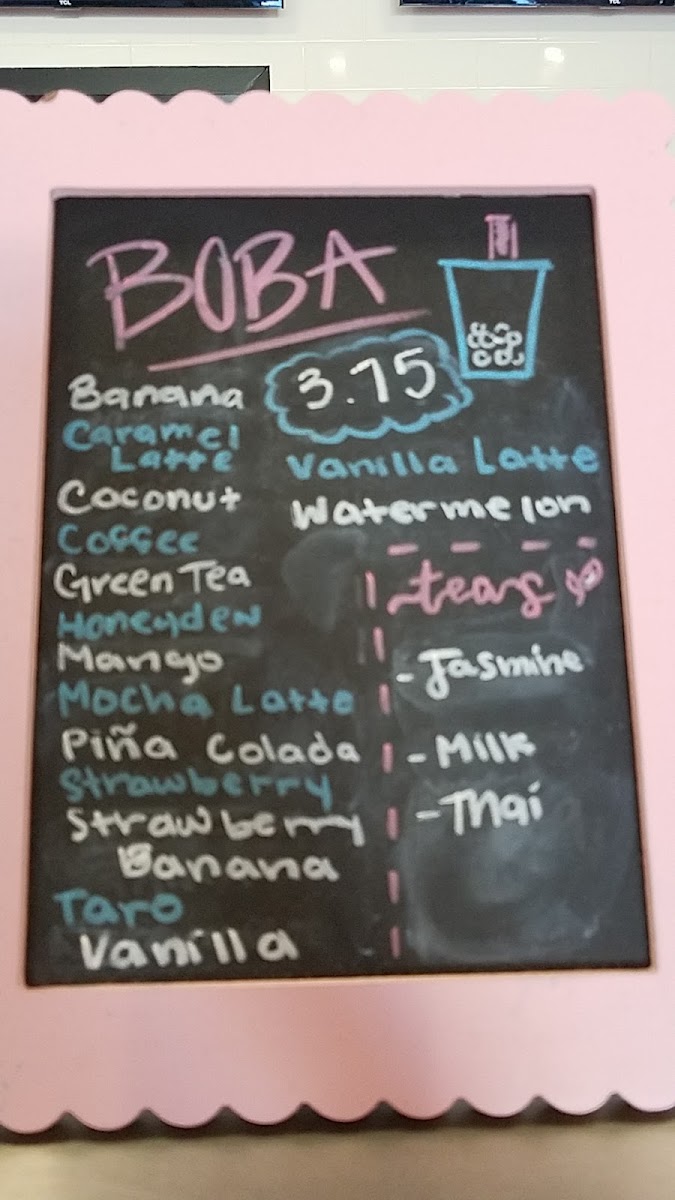 TCL
TCL
BOBA
3.75
Banana
Caramel
Latte
Coconut
Coffee
Green Tea
Honeydew
Mango
Mocha Latte
Piña Colada
Strawberry
Strawberry
Banana
Taro
Vanilla
Vanilla Latte
Watermelon
teas
- Jasmine
- Milk
- Thai